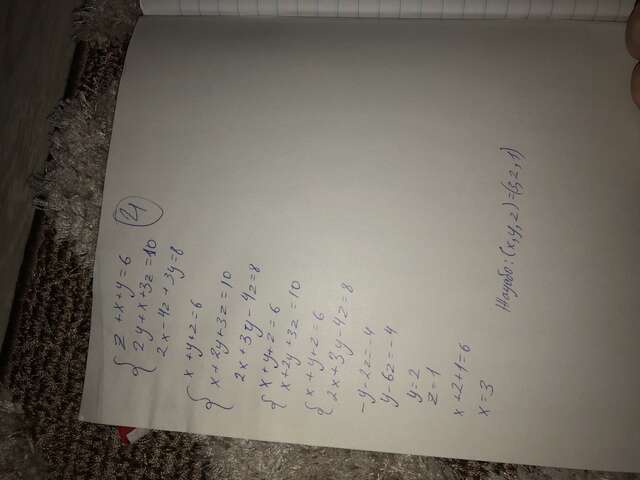 24
z + x + y = 6
2y + x + 3z = 10
2x - 4z + 3y = 8
x + y + z = 6
x + 2y + 3z = 10
2x + 3y - 4z = 8
x + y + z = 6
x + 2y + 3z = 10
x + y + z = 6
2x + 3y - 4z = 8
-y - 2z = -4
y - 6z = -4
y = 2
z = 1
x + 2 + 1 = 6
x = 3
(x, y, z) = (3, 2, 1)